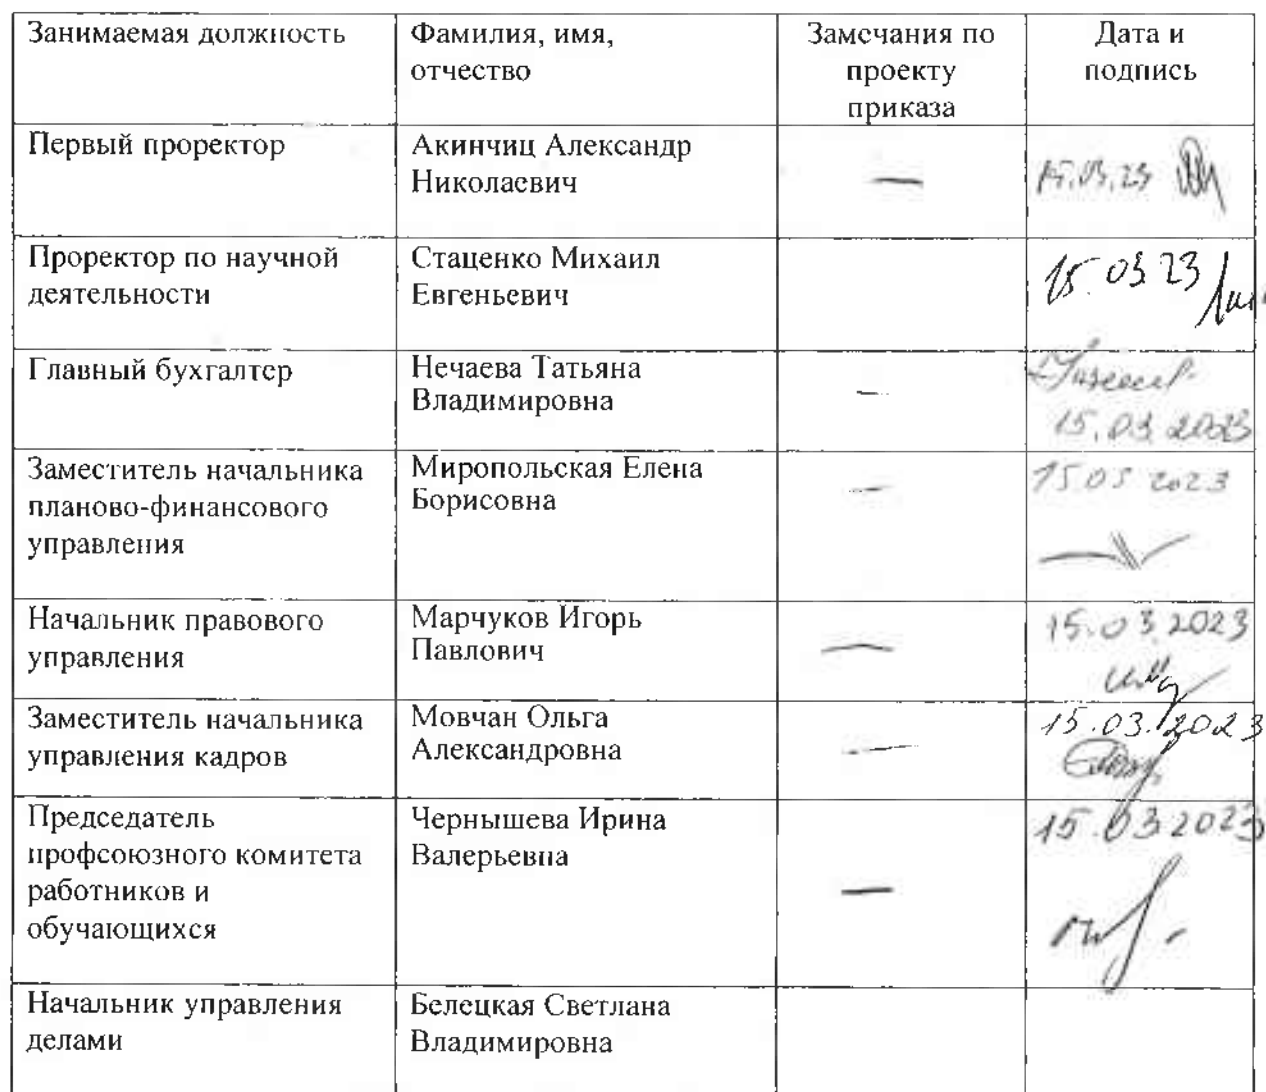 Занимаемая должность
Фамилия, имя,
отчество
Замечания по
проекту
приказа
Дата и
подпись
Первый проректор
Акинчиц Александр
Николаевич
—
15.03.23
Проректор по научной
деятельности
Стаценко Михаил
Евгеньевич
15.03.23
Главный бухгалтер
Нечаева Татьяна
Владимировна
—
15.03.2023
Заместитель начальника
планово-финансового
управления
Миропольская Елена
Борисовна
—
15.03.2023
Начальник правового
управления
Марчуков Игорь
Павлович
—
15.03.2023
Заместитель начальника
управления кадров
Мовчан Ольга
Александровна
—
15.03.2023
Председатель
профсоюзного комитета
работников и
обучающихся
Чернышева Ирина
Валерьевна
—
15.03.2023
Начальник управления
делами
Белецкая Светлана
Владимировна